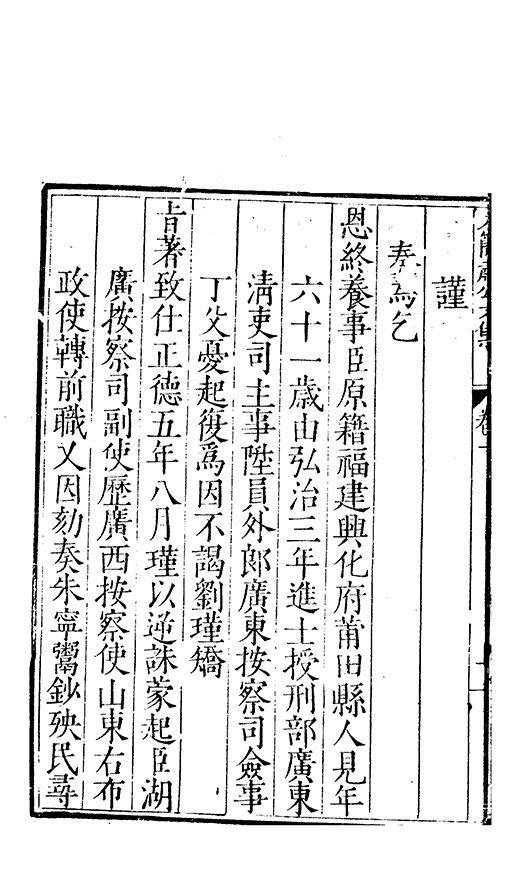 簡肅公文集 卷
謹
奏爲乞
恩終養事臣原籍福建興化府莆田縣人見年
六十一歲由弘治三年進士授刑部廣東
清吏司主事陞員外郎廣東按察司僉事
丁父憂起復爲因不謁劉瑾矯
旨著致仕正德五年八月瑾以逆誅蒙起臣湖
廣按察司副使歷廣西按察使山東右布
政使轉前職又因劾奏朱寧鬻鈔殃民尋